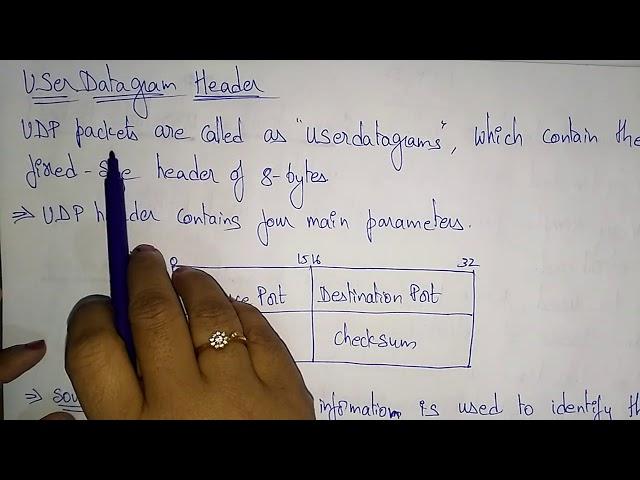 User Datagram Header
UDP packets are called as "userdatagrams", which contain the
fixed-size header of 8-bytes
⇒ UDP header contains four main parameters.
0 15 16 32
Port Destination Port
checksum
⇒ information is used to identify